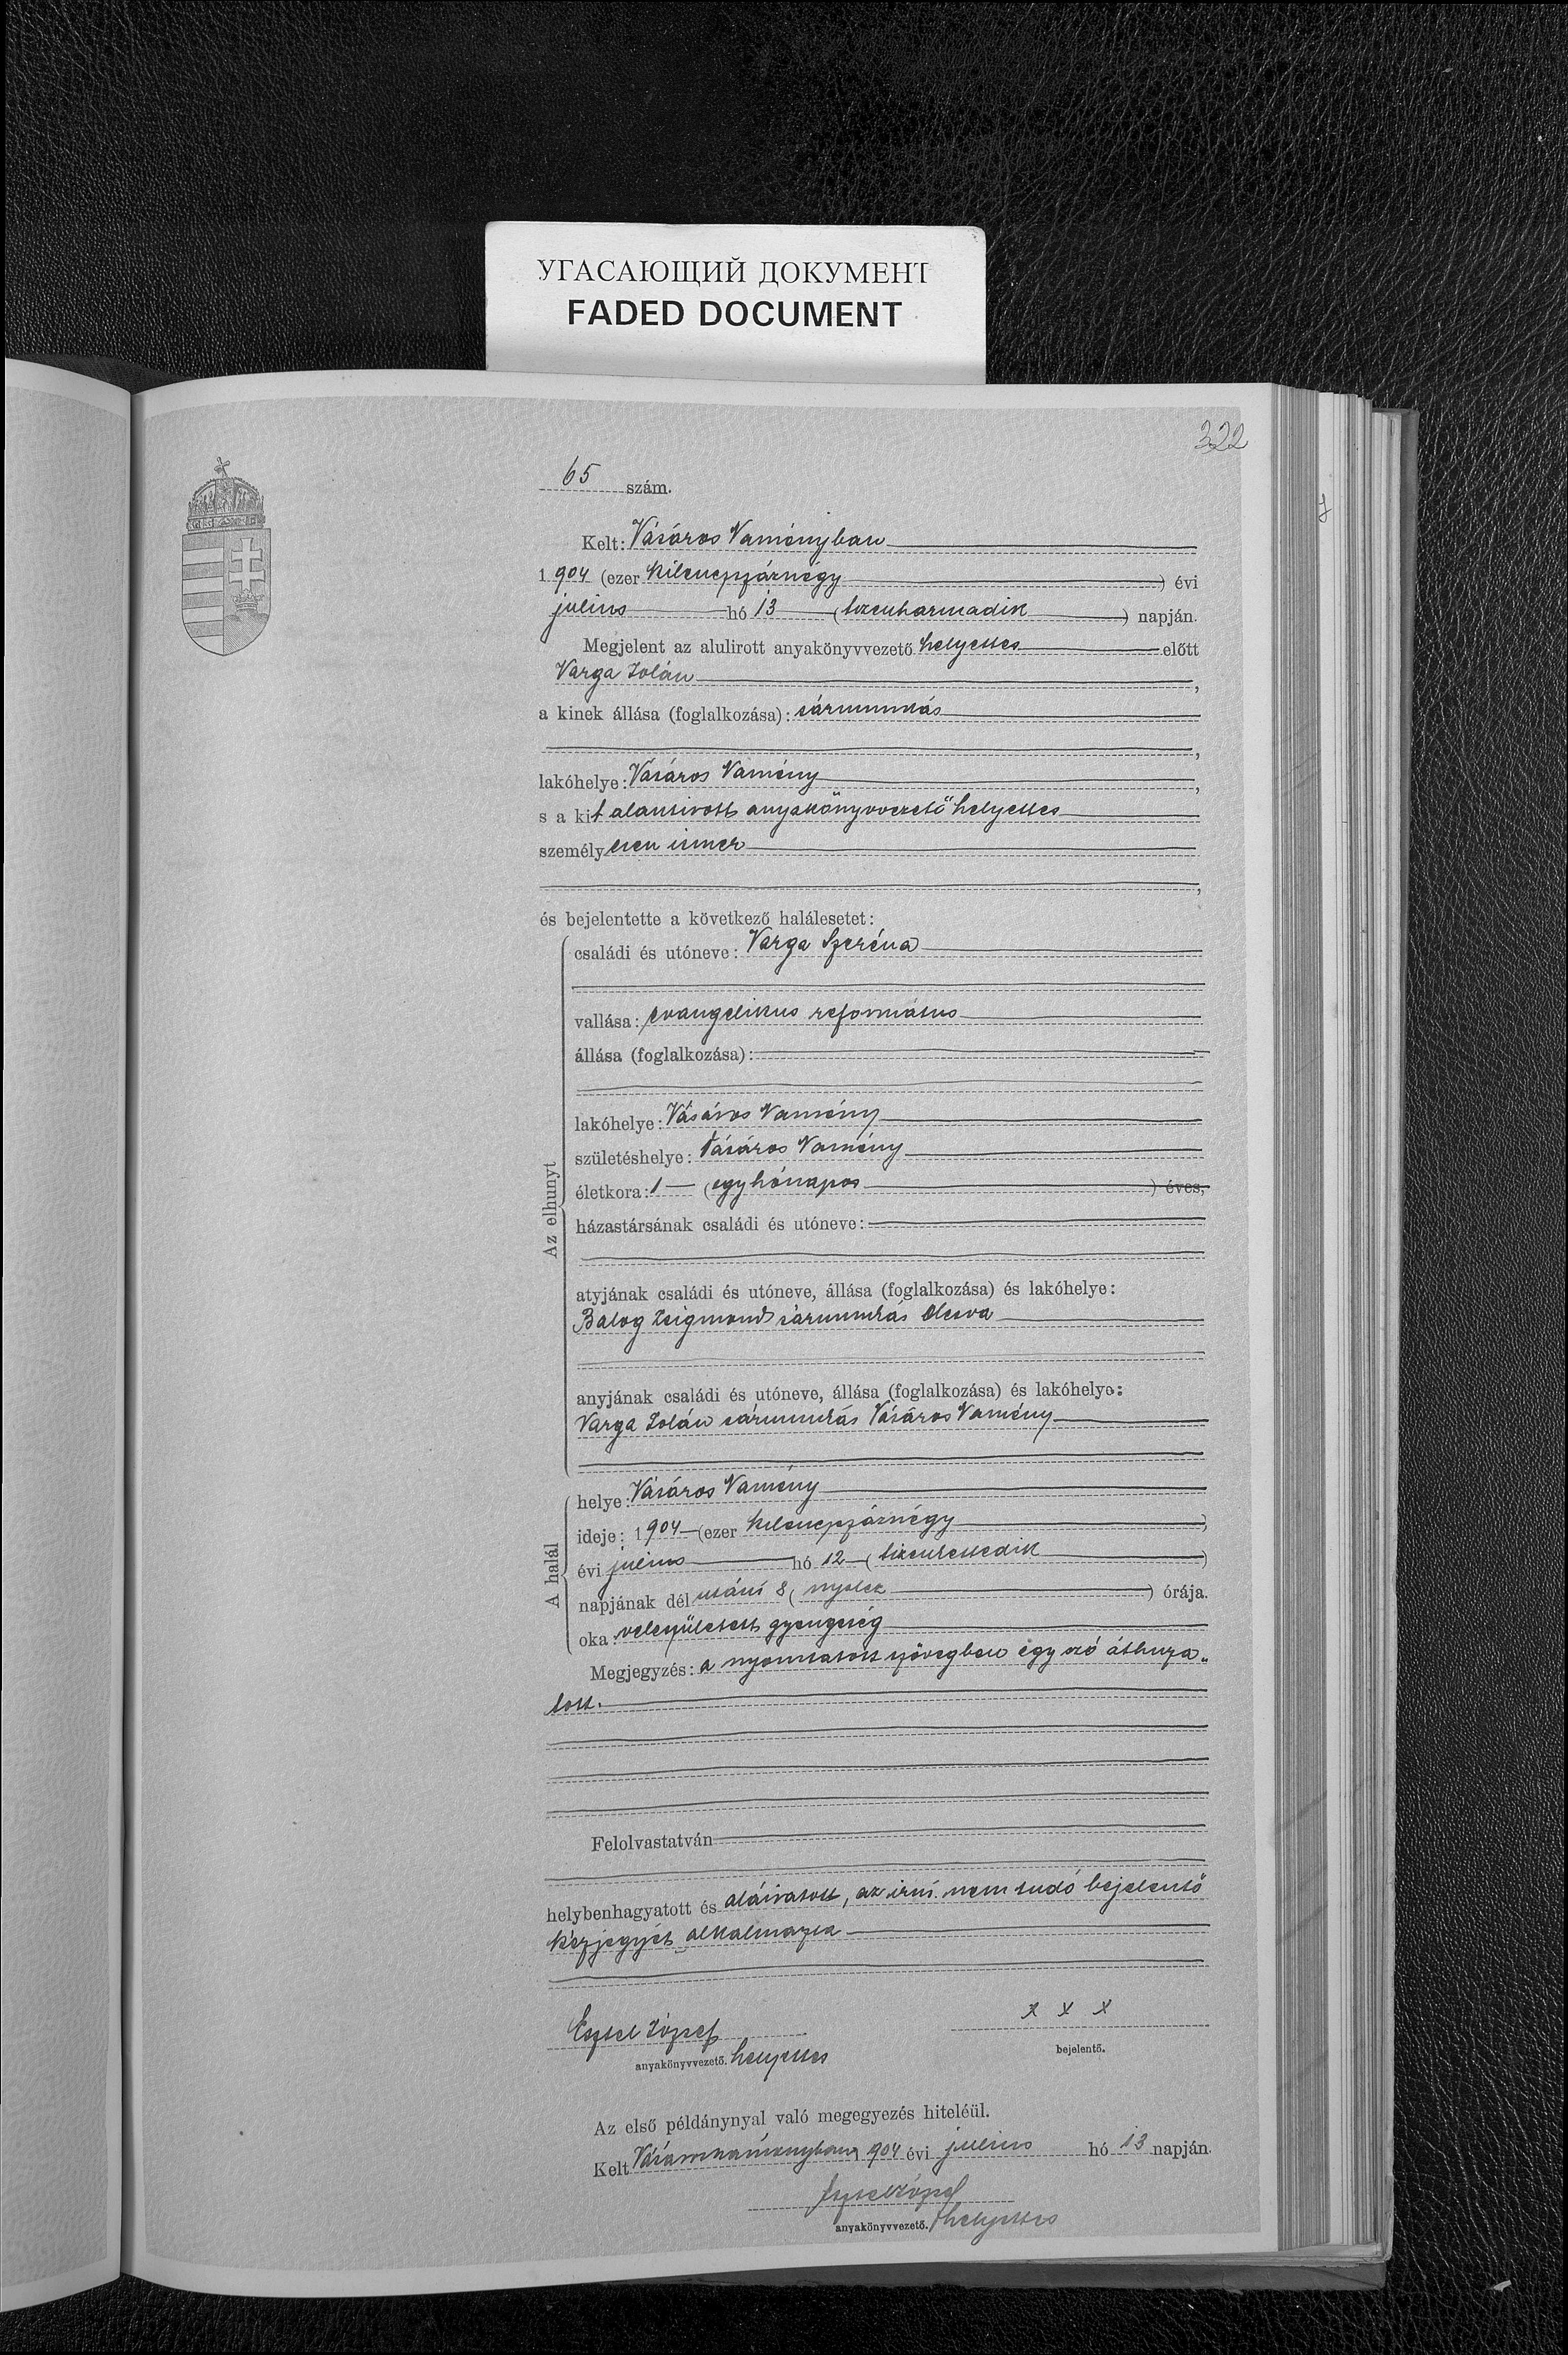 УГАСАЮЩИЙ ДОКУМЕНТ
FADED DOCUMENT
322
65 szám.
Kelt: Vásáros Naményban
1904 (ezer kilenczszáznégy) évi
julius hó 13 (tizenharmadik) napján.
Megjelent az alulirott anyakönyvvezető helyettes előtt
Varga Zolán,
a kinek állása (foglalkozása): sármunkás
,
lakóhelye: Vásáros Namény,
s a kit alantirott anyakönyvvezető helyettes
személyesen ismer
,
és bejelentette a következő halálesetet:
Az elhunyt
családi és utóneve: Varga Szeréna
vallása: evangelikus református
állása (foglalkozása):
lakóhelye: Vásáros Namény
születéshelye: Vásáros Namény
életkora: 1 (egy hónapos) éves,
házastársának családi és utóneve:
atyjának családi és utóneve, állása (foglalkozása) és lakóhelye:
Balog Zsigmond sármunkás Olcsva
anyjának családi és utóneve, állása (foglalkozása) és lakóhelye:
Varga Zolán sármunkás Vásáros Namény
A halál
helye: Vásáros Namény
ideje: 1904 (ezer kilenczszáznégy)
évi julius hó 12 (tizenkettedik)
napjának dél utáni 8 (nyolcz) órája.
oka: veleszületett gyengeség
Megjegyzés: a nyomtatott szövegben egy szó áthuza„
tott.
Felolvastatván
helybenhagyatott és aláiratott, az irni nem tudó bejelentő
kézjegyét alkalmazta
x x x
József
anyakönyvvezető. helyettes
bejelentő.
Az első példánynyal való megegyezés hiteléül.
Kelt Vásárosnaményban 1904 évi julius hó 13 napján.
József
anyakönyvvezető. helyettes